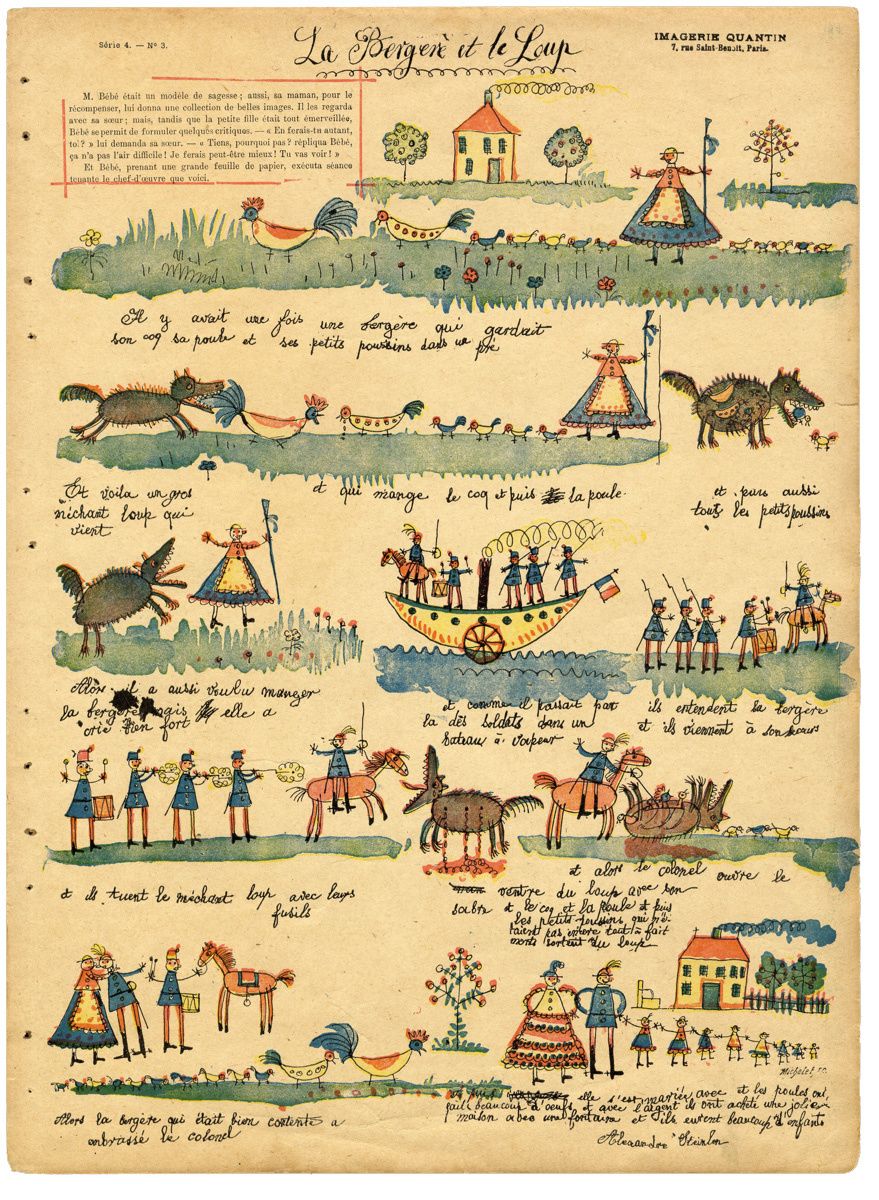 Série 4. — N° 3.
La Bergère et le Loup
IMAGERIE QUANTIN
7, rue Saint-Benoît, Paris.
M. Bébé était un modèle de sagesse ; aussi, sa maman, pour le
récompenser, lui donna une collection de belles images. Il les regarda
avec sa sœur ; mais, tandis que la petite fille était tout émerveillée,
Bébé se permit de formuler quelques critiques. — « En ferais-tu autant,
toi ? » lui demanda sa sœur. — « Tiens, pourquoi pas ? répliqua Bébé,
ça n'a pas l'air difficile ! Je ferais peut-être mieux ! Tu vas voir ! »
Et Bébé, prenant une grande feuille de papier, exécuta séance
tenante le chef-d'œuvre que voici.
Il y avait une fois une bergère qui gardait
son coq sa poule et ses petits poussins dans un pré
Et voila un gros
méchant loup qui
vient
et qui mange le coq et puis la poule.
et puis aussi
tous les petits poussins
Alors il a aussi voulu manger
la bergère mais elle a
crié bien fort
et comme il passait par
la des soldats dans un
bateau à vapeur
ils entendent la bergère
et ils viennent à son secours
et ils tuent le méchant loup avec leurs
fusils
et alors le colonel ouvre le
ventre du loup avec son
sabre et le coq et la poule et puis
les petits poussins, qui n'é-
taient pas encore tout à fait
morts sortent du loup
Alors la bergère qui était bien contente a
embrassé le colonel
Michelet sc.
et puis elle s'est mariée avec et les poules ont
fait beaucoup d'oeufs et avec l'argent ils ont acheté une jolie
maison avec une fontaine et ils eurent beaucoup d'enfants
Alexandre Steinlen